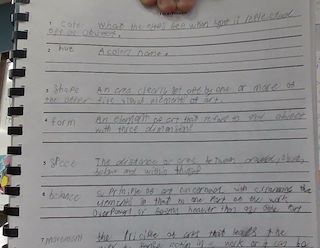 1 Color What the eyes see when light is reflected
off an object.
2 hue A colors name.
3 Shape An area clearly set off by one or more of
the other five visual elements of art.
4 form An element of art that refers to an object
with three dimensions
5 Space The distance or area between, around, above,
below and within things
6 balance a principle of art concerned with arranging the
elements so that no one part of the work
overpowers or seems heavier than any other part
7 movement the Principle of art that leads the